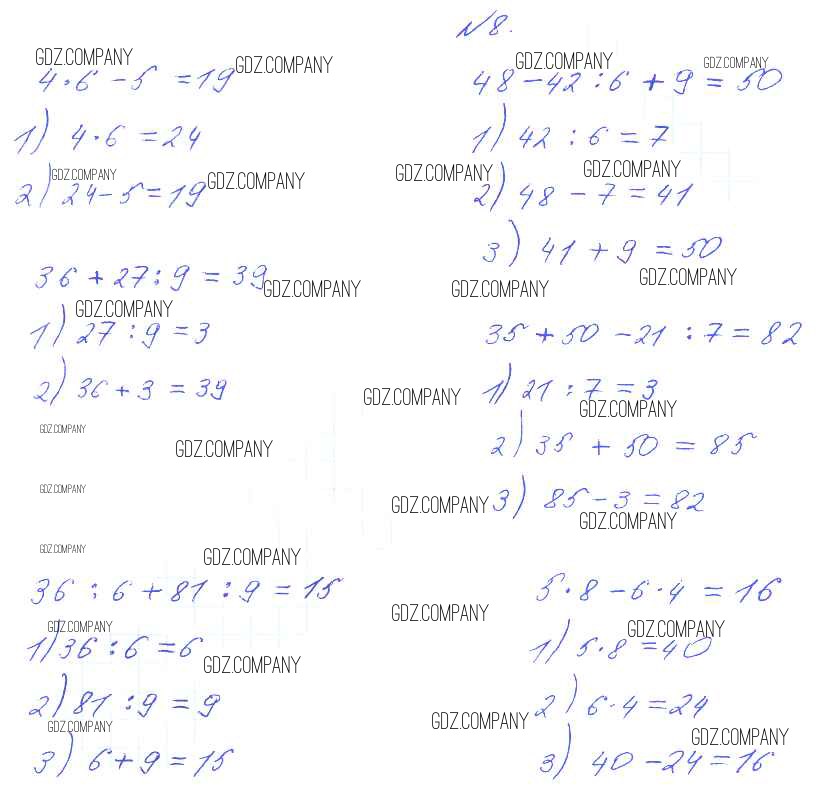 №8.
GDZ.COMPANY
4·6-5 =19
GDZ.COMPANY
1) 4·6 =24
GDZ.COMPANY
2) 24-5=19
GDZ.COMPANY
36+27:9 = 39
GDZ.COMPANY
GDZ.COMPANY
1) 27:9=3
2) 36+3 =39
GDZ.COMPANY
GDZ.COMPANY
GDZ.COMPANY
GDZ.COMPANY
GDZ.COMPANY
36:6+81:9=15
GDZ.COMPANY
1) 36:6=6
GDZ.COMPANY
2) 81:9=9
GDZ.COMPANY
3) 6+9=15
GDZ.COMPANY
GDZ.COMPANY
48-42:6+9=50
1) 42:6=7
GDZ.COMPANY
GDZ.COMPANY
2) 48-7=41
3) 41+9=50
GDZ.COMPANY
GDZ.COMPANY
35+50-21:7=82
GDZ.COMPANY
1) 21:7=3
GDZ.COMPANY
2) 35+50=85
GDZ.COMPANY
3) 85-3=82
GDZ.COMPANY
5·8-6·4=16
GDZ.COMPANY
GDZ.COMPANY
1) 5·8=40
2) 6·4=24
GDZ.COMPANY
GDZ.COMPANY
3) 40-24=16